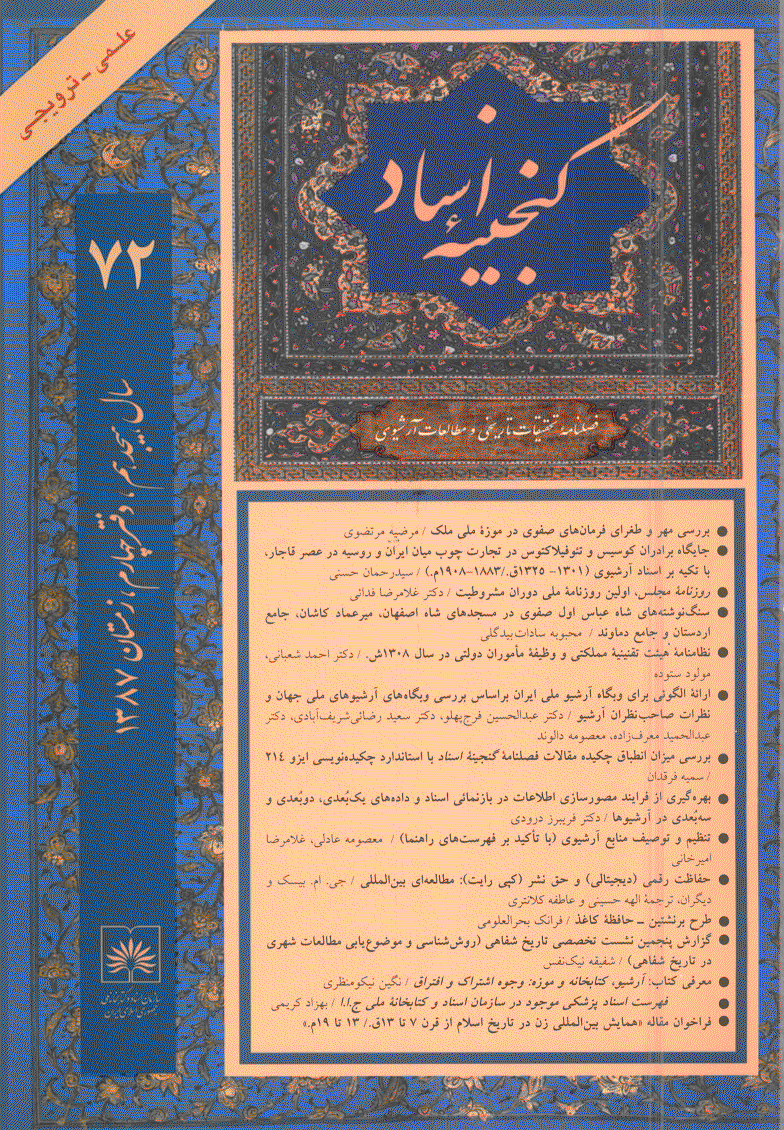 علمی - ترویجی
گنجینه اسناد
فصلنامه تحقیقات تاریخی و مطالعات آرشیوی
۷۲
سال هیجدهم، دفتر چهارم، زمستان ۱۳۸۷
● بررسی مهر و طغرای فرمان‌های صفوی در موزهٔ ملی ملک / مرضیه مرتضوی
● جایگاه برادران کوسیس و تئوفیلاکتوس در تجارت چوب میان ایران و روسیه در عصر قاجار،
با تکیه بر اسناد آرشیوی (۱۳۰۱- ۱۳۲۵ق./۱۸۸۳-۱۹۰۸م.) / سیدرحمان حسنی
● روزنامهٔ مجلس، اولین روزنامهٔ ملی دوران مشروطیت / دکتر غلامرضا فدائی
● سنگ‌نوشته‌های شاه عباس اول صفوی در مسجدهای شاه اصفهان، میرعماد کاشان، جامع
اردستان و جامع دماوند / محبوبه سادات‌بیدگلی
● نظامنامهٔ هیئت تقنینیهٔ مملکتی و وظیفهٔ مأموران دولتی در سال ۱۳۰۸ش. / دکتر احمد شعبانی،
مولود ستوده
● ارائهٔ الگوئی برای وبگاه آرشیو ملی ایران براساس بررسی وبگاه‌های آرشیوهای ملی جهان و
نظرات صاحب‌نظران آرشیو / دکتر عبدالحسین فرج‌پهلو، دکتر سعید رضائی‌شریف‌آبادی، دکتر
عبدالحمید معرف‌زاده، معصومه دالوند
● بررسی میزان انطباق چکیده مقالات فصلنامهٔ گنجینهٔ اسناد با استاندارد چکیده‌نویسی ایزو ۲۱۴
/ سمیه فرقدان
● بهره‌گیری از فرایند مصورسازی اطلاعات در بازنمائی اسناد و داده‌های یک‌بُعدی، دوبُعدی و
سه‌بُعدی در آرشیوها / دکتر فریبرز درودی
● تنظیم و توصیف منابع آرشیوی (با تأکید بر فهرست‌های راهنما) / معصومه عادلی، غلامرضا
امیرخانی
● حفاظت رقمی (دیجیتالی) و حق نشر (کپی رایت): مطالعه‌ای بین‌المللی / جی. ام. بیسک و
دیگران، ترجمهٔ الهه حسینی و عاطفه کلانتری
● طرح برنشتین ــ حافظهٔ کاغذ / فرانک بحرالعلومی
● گزارش پنجمین نشست تخصصی تاریخ شفاهی (روش‌شناسی و موضوع‌یابی مطالعات شهری
در تاریخ شفاهی) / شفیقه نیک‌نفس
● معرفی کتاب: آرشیو، کتابخانه و موزه: وجوه اشتراک و افتراق / نگین نیکومنظری
● فهرست اسناد پزشکی موجود در سازمان اسناد و کتابخانهٔ ملی ج.ا.ا / بهزاد کریمی
● فراخوان مقاله «همایش بین‌المللی زن در تاریخ اسلام از قرن ۷ تا ۱۳ق./ ۱۳ تا ۱۹م.»
سازمان اسناد و کتابخانه ملی
جمهوری اسلامی ایران